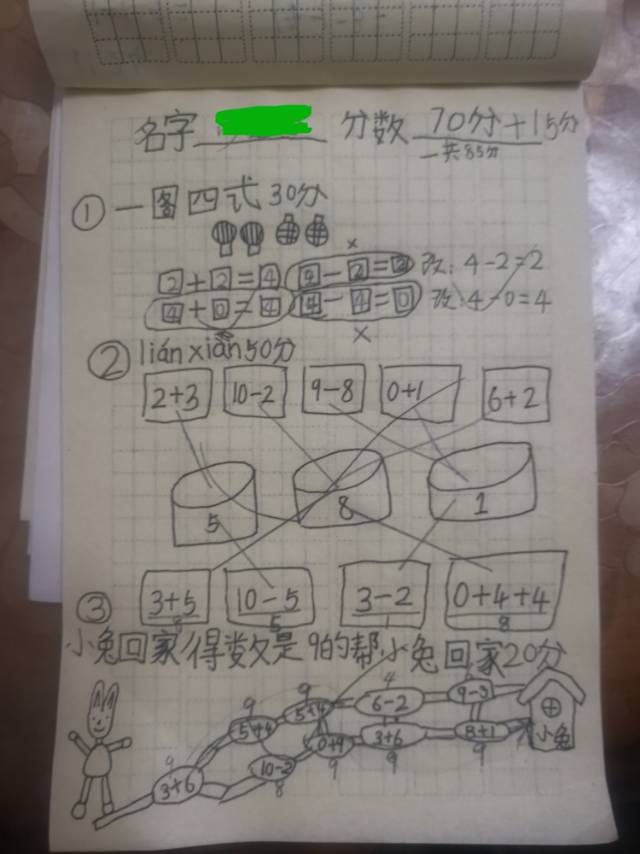 名字 分数 70分+15分
一共85分
① 一图四式30分
×
2+2=4 4-2=2 改:4-2=2
4+0=4 4-4=0 改:4-0=4
×
② liánxiàn50分
2+3 10-2 9-8 0+1 6+2
5 8 1
3+5 10-5 3-2 0+4+4
8 5 1 8
③
小兔回家得数是9的帮小兔回家20分
9 9 4
5+4 5+4 6-2
9 3+6 10-2 3+6 8+1 小兔
8 9 9 9